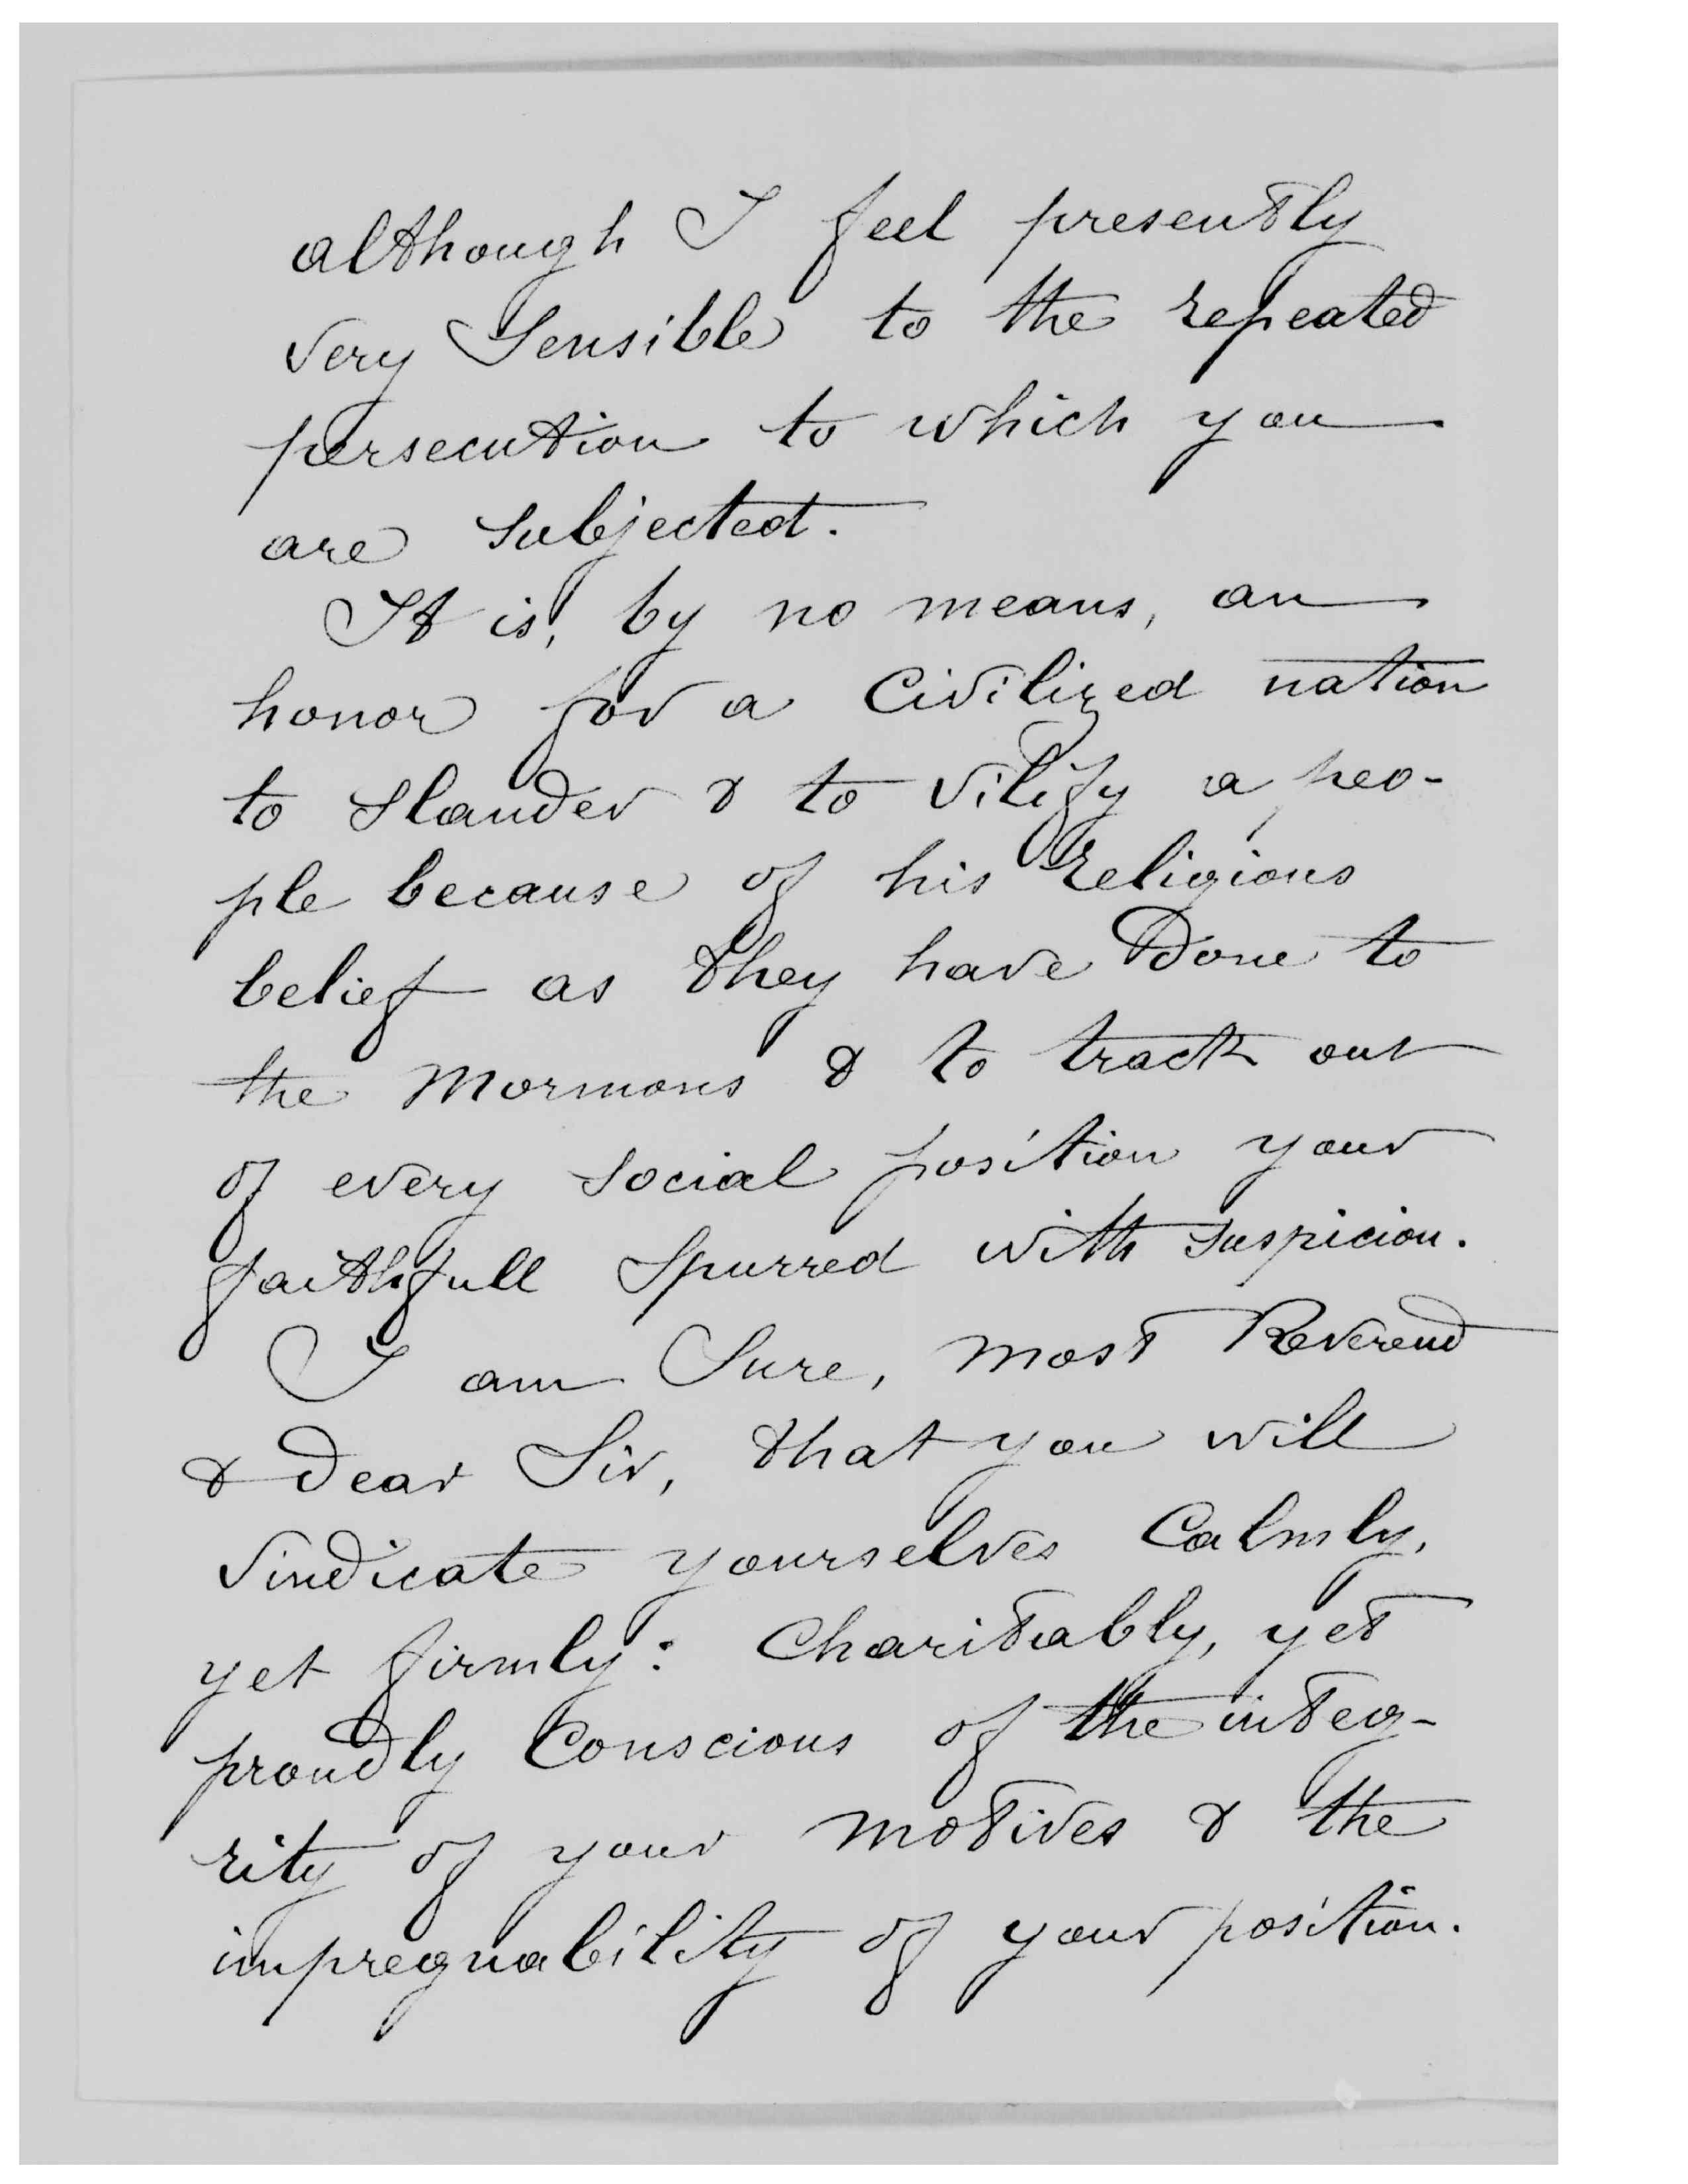 although I feel presently
very Sensible to the repeated
persecution to which you
are subjected.
It is, by no means, an
honor for a Civilized nation
to Slander & to vilify a peo-
ple because of his religious
belief as they have done to
the Mormons & to track out
of every social position your
faithfull Spurred with suspicion.
I am Sure, most Reverend
& dear Sir, that you will
vindicate yourselves Calmly,
yet firmly: Charitably, yet
proudly Conscious of the integ-
rity of your motives & the
impregnability of your position.